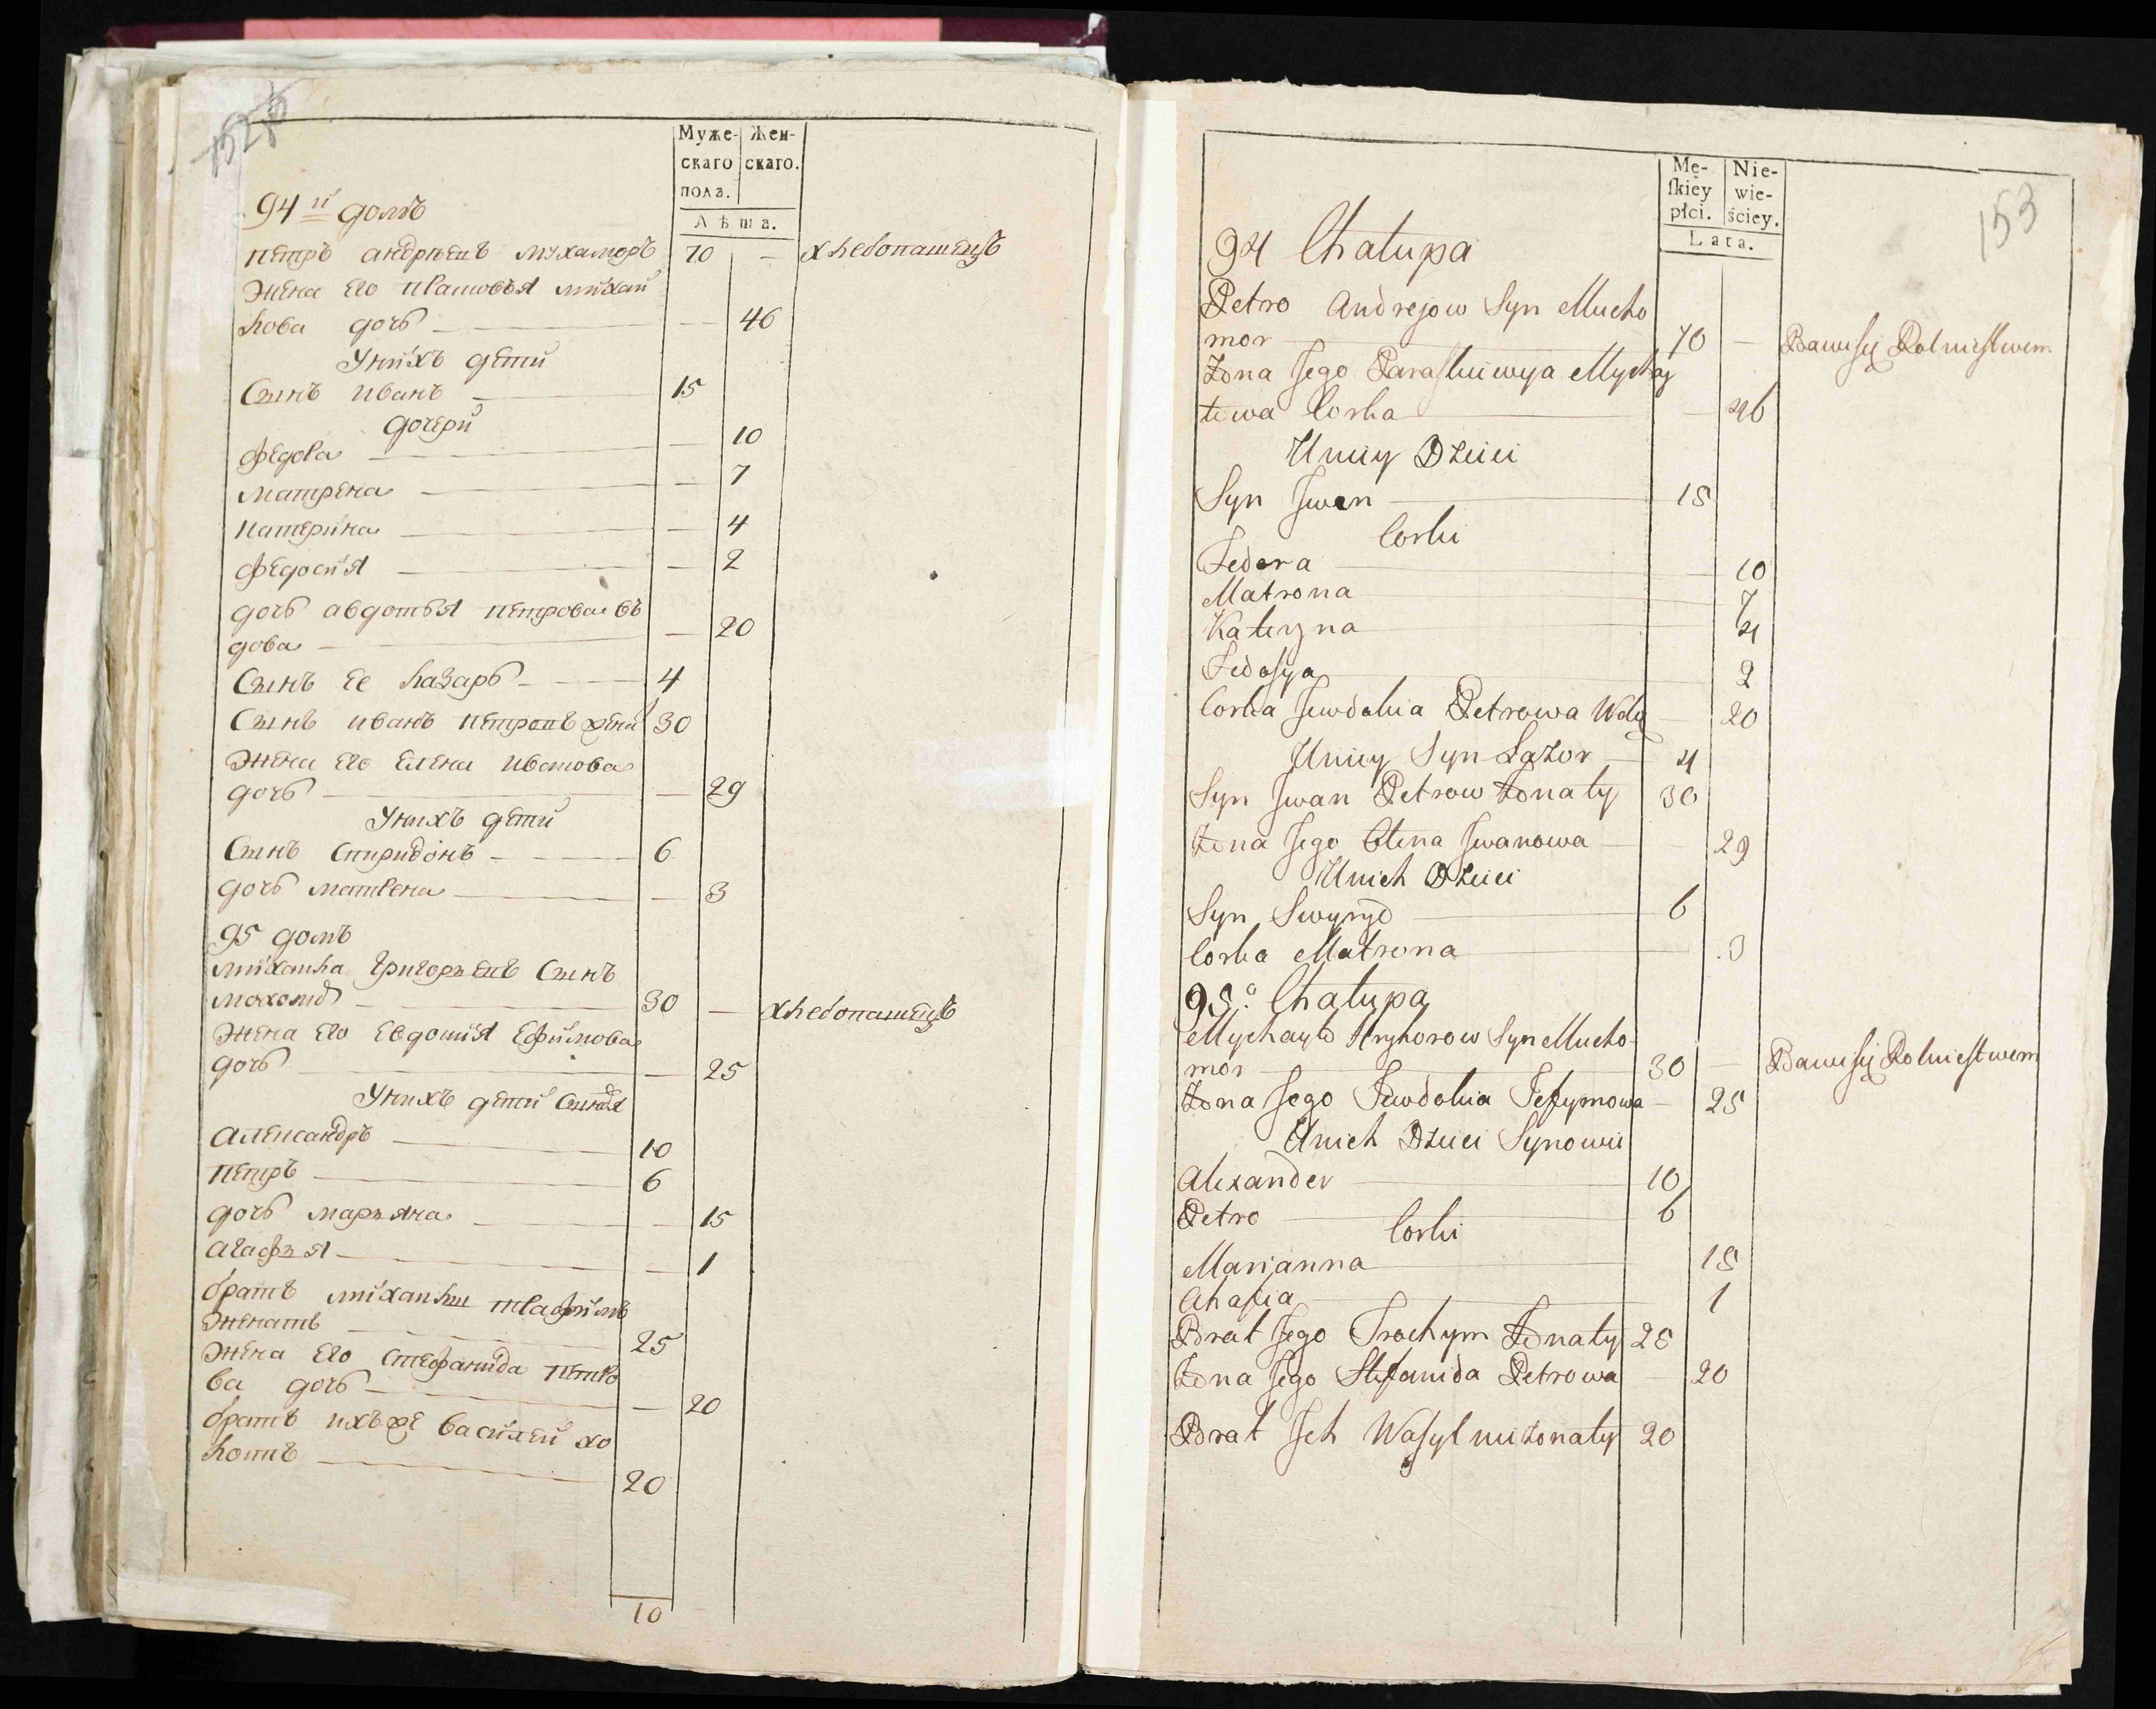 Муже-
скаго
пола.
Жен-
скаго.
Лѣта.
94й домъ
петръ андрѣевъ мухаморъ 70 — хлебопашецъ
Жена его михай
лова дочь — — 46
У них детй
Сынъ иванъ — 15
дочери
— — 10
матрена — — 7
катерина — — 4
федосия — — 2
дочь авдотья петрова въ
дова — — 20
Сынъ ее лазарь — 4
Сынъ иванъ 30
Жена его елена иванова
дочь — — 29
У нихъ детй
Сынъ спиридонъ — 6
дочь — — 3
95 домъ
михаила григорьевъ Сынъ
30 — хлебопашецъ
Жена его евдокия ефимова
дочь — — 25
У нихъ детй
александръ — 10
петръ — 6
дочь марьяна — — 15
агафья — — 1
братъ
женатъ — 25
Жена его стефанида петро
ва дочь — — 20
братъ ихъ же василей хо
лостъ — 20
10
153
Mę-
ſkiéy
płci.
Nie-
wie-
ściey.
Lata.
94 Chałupa
Petro Andrejow Syn Mucho
mor — 70 — Bawi się Rolnictwem
Żona Jego Paraskiewija Mychaj
łowa Corka — — 46
U niey Dzieci
Syn Jwan — 15
Corki
Fedora — — 10
Matrona — — 7
Kateryna — — 4
Fedosya — — 2
Corka Jewdokia Petrowa Wdo — 20
U niey Syn Łazor — 4
Syn Jwan Petrow Żonaty 30
Żona Jego Olena Jwanowa — 29
U nich Dzieci
Syn Swyryd — 6
Corka Matrona — — 3
95.o Chałupa
Mychayło Hryhorow Syn Mucho-
mor — 30 — Bawi się Rolnictwem
Żona Jego Jewdokia Jefymowa — 25
U nich Dzieci Synowie
Alexander — 10
Petro — 6
Corki
Marianna — 15
Ahafia — 1
Brat Jego Trochym Żonaty 25
Żona Jego Stefanida Petrowa — 20
Brat Jch Wasyl nieżonaty 20